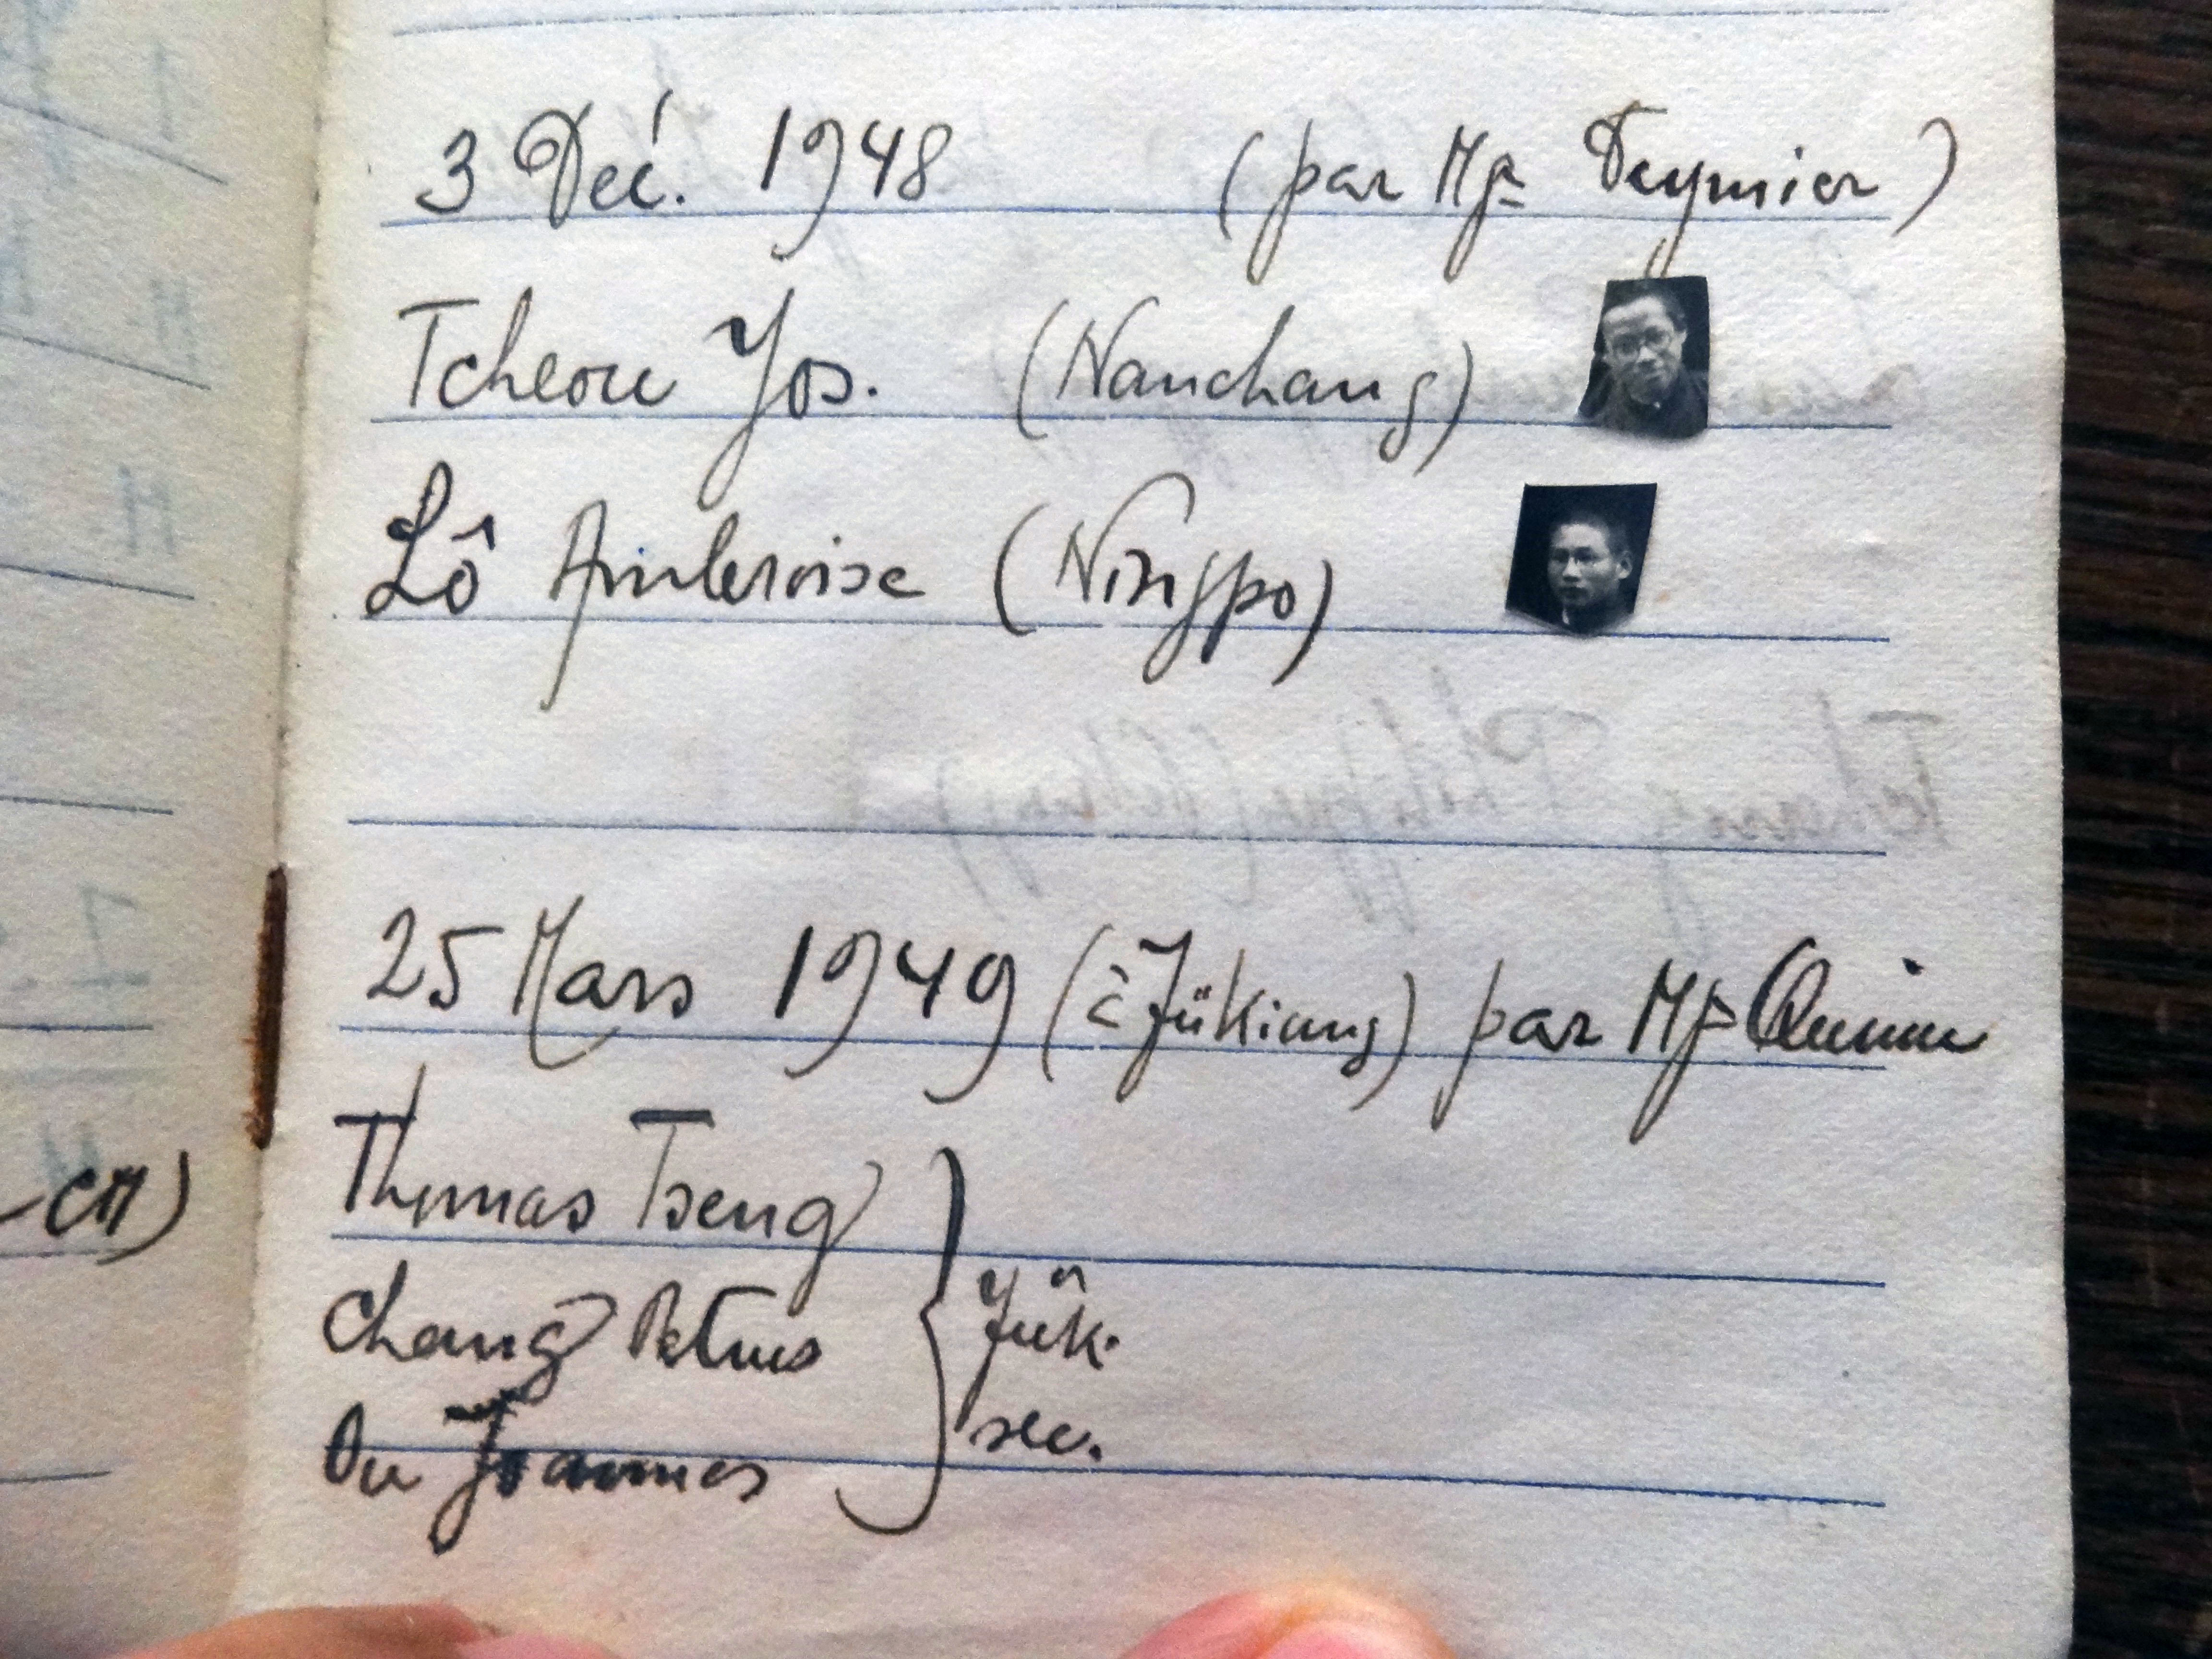 3 Déc. 1948 (par Mgr Deymier)
Tcheou Jos. (Nanchang)
Lô Ambroise (Ningpo)
25 Mars 1949 (à Jükiang) par Mgr
Thomas Tseng
Chang Petrus
Ou Joannes
Jük.
sec.
CM)